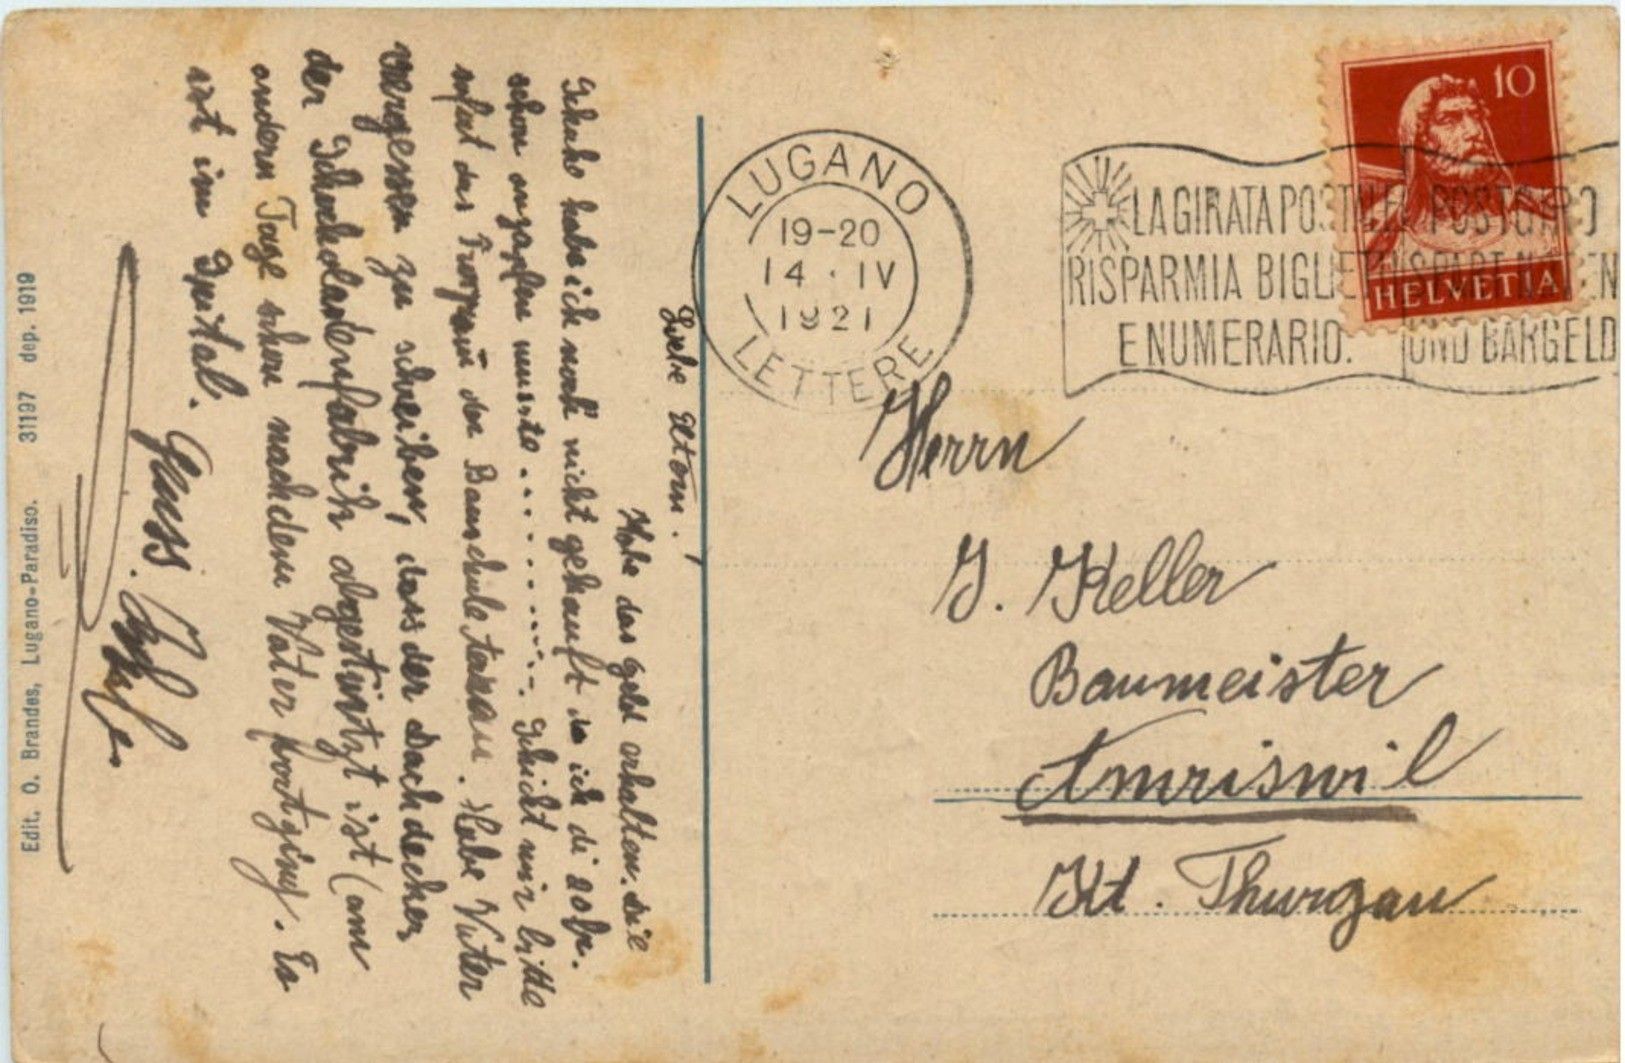 Liebe Eltern!
Habe das Geld erhalten. Die
Schuhe habe ich noch nicht gekauft da ich di
schon musste . . . . . . . . . . Schickt mir bitte
das der Bauschule. Habe Vater
vergessen zu schreiben, dass der Dachdecker
der Schokoladenfabrik abgestürtzt ist (am
andern Tage schon nachdem Vater fortging. Es
ist im Spital.
Gruss.
Edit. O. Brandes, Lugano-Paradiso. 31197 dep. 1919
LUGANO
19-20
14 · IV
1921
LETTERE
LA GIRATA POSTALE POSTGIRO
RISPARMIA BIGLIETTI SPART NOTEN
E NUMERARIO. UND BARGELD
10
HELVETIA
Herrn
J. Keller
Baumeister
Amriswil
Kt. Thurgau